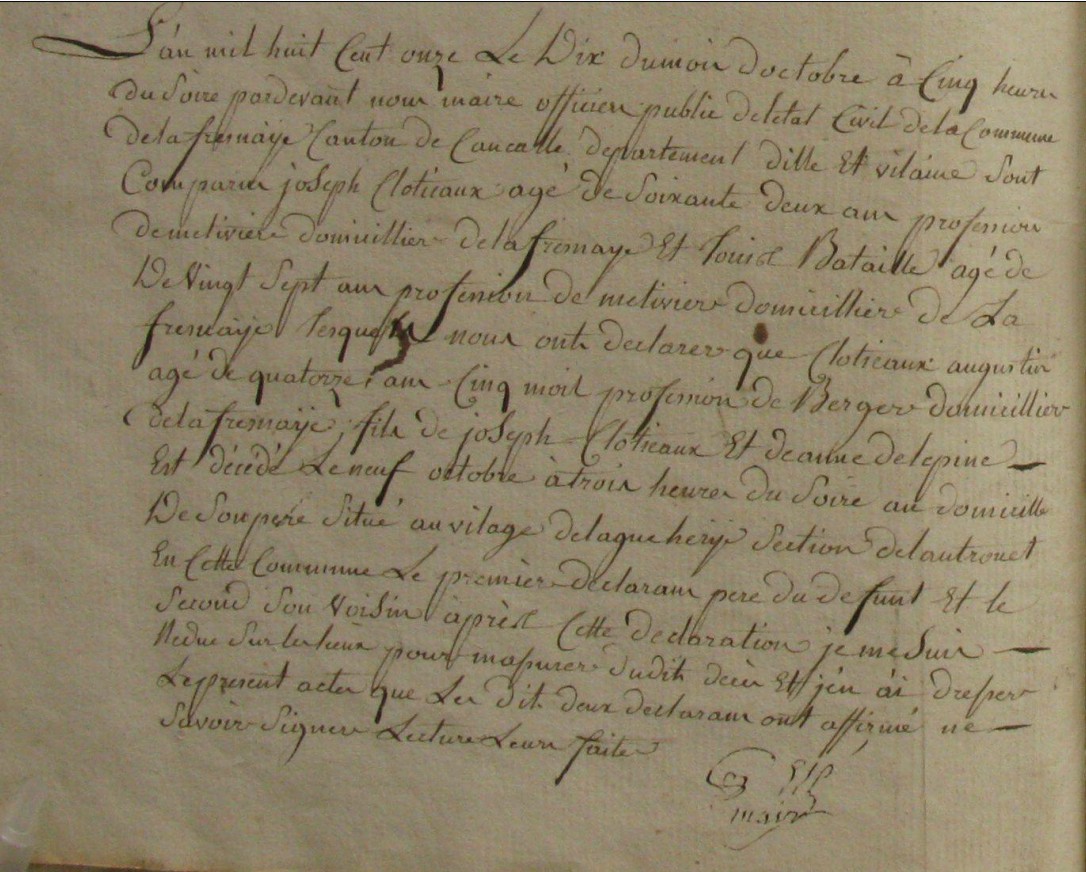 L'an mil huit Cent onze Le Dix dumois doctobre â Cinq heures
du Soire pardevant nous maire officier public deletat Civil dela Commune
delafresnaÿe Canton de Cancalle departement dille Et vilaine Sont
Comparus joSeph Clotieaux agé de Soixante deux ans profession
demetiviere domicillier delafresnaye Et Louise Bataille agé de
De Vingt Sept ans profession de metivier domicillier de La
fresnaÿe lesquels nous onts declarer que Clotieaux augustin
agé de quatorze ans Cinq mois profession de Berger domicillier
delafresnaÿe, fils de joSeph Clotieaux Et deanne delepine —
Est décédé Le neuf octobre à trois heures du Soire au domicille
De Son pere Situé au vilage delagueherÿe Section delautrouet
En Cette Commune Le premier declarans pere du defunt Et le
Second Son VoiSin apres Cette declaration je me Suis —
Redue Sur les lieux pour masurer dudit déces Et j'en ai dresser
Le present acte que Les dit deux declarans ont affirmé ne —
Savoir Signer Lecture Leurs faite
maire